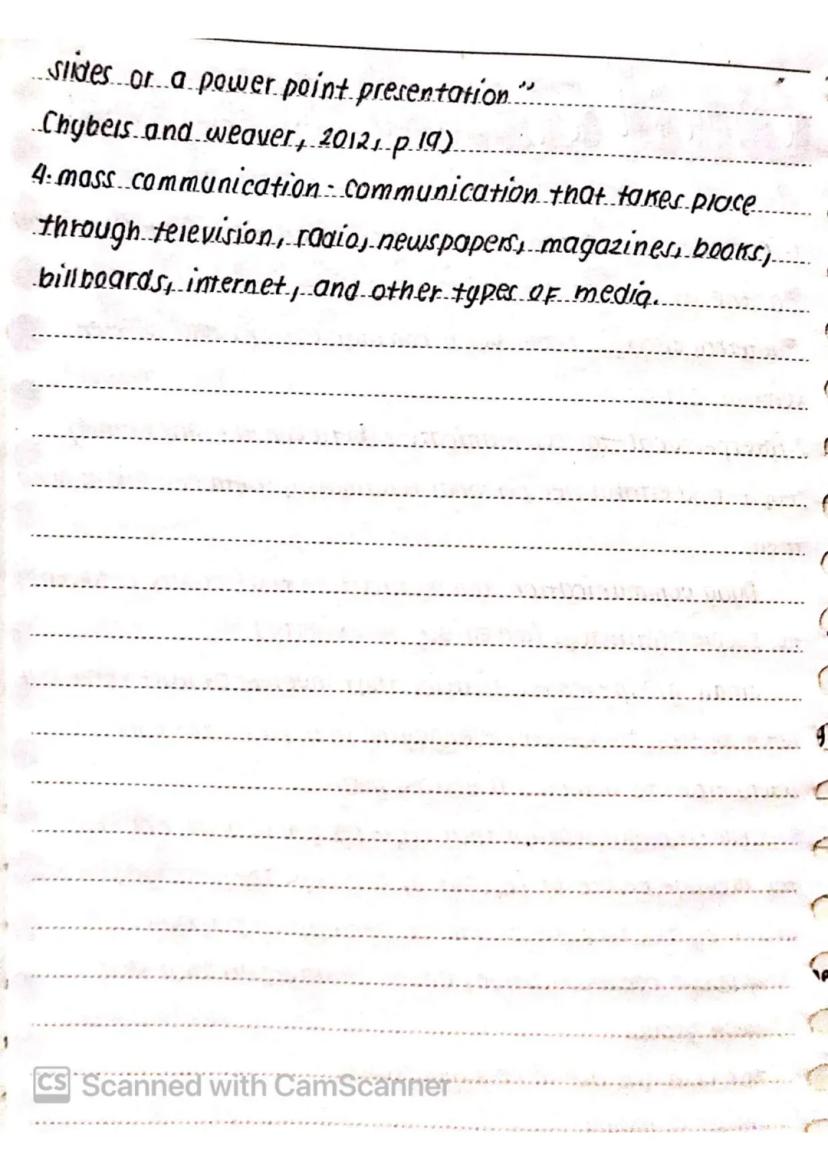 slides or a power point presentation"
Chybels and weaver, 2012, p 19)
4. mass communication - communication that takes place
through television, radio, newspapers, magazines, books,
billboards, internet, and other types of media.
CS Scanned with CamScanner